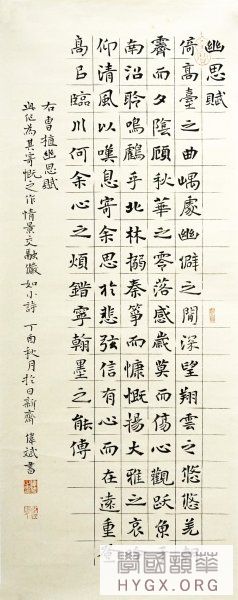 幽思賦
倚高臺之曲嵎處幽僻之閒深望翔雲之悠悠羌
霽而夕陰顧秋華之零落感歲莫而傷心觀躍魚
南沼聆鳴鶴乎北林搦秦筝而慷慨揚大雅之哀
仰清風以嘆息寄余思於悲弦信有心而在遠重
高㠯臨川何余心之煩錯寧翰墨之能傳
右曹植幽思賦
為其寄慨之作情景交融儼如小詩 丁酉秋月於日新齋 偉斌書
學國韻華
HYGX.ORG